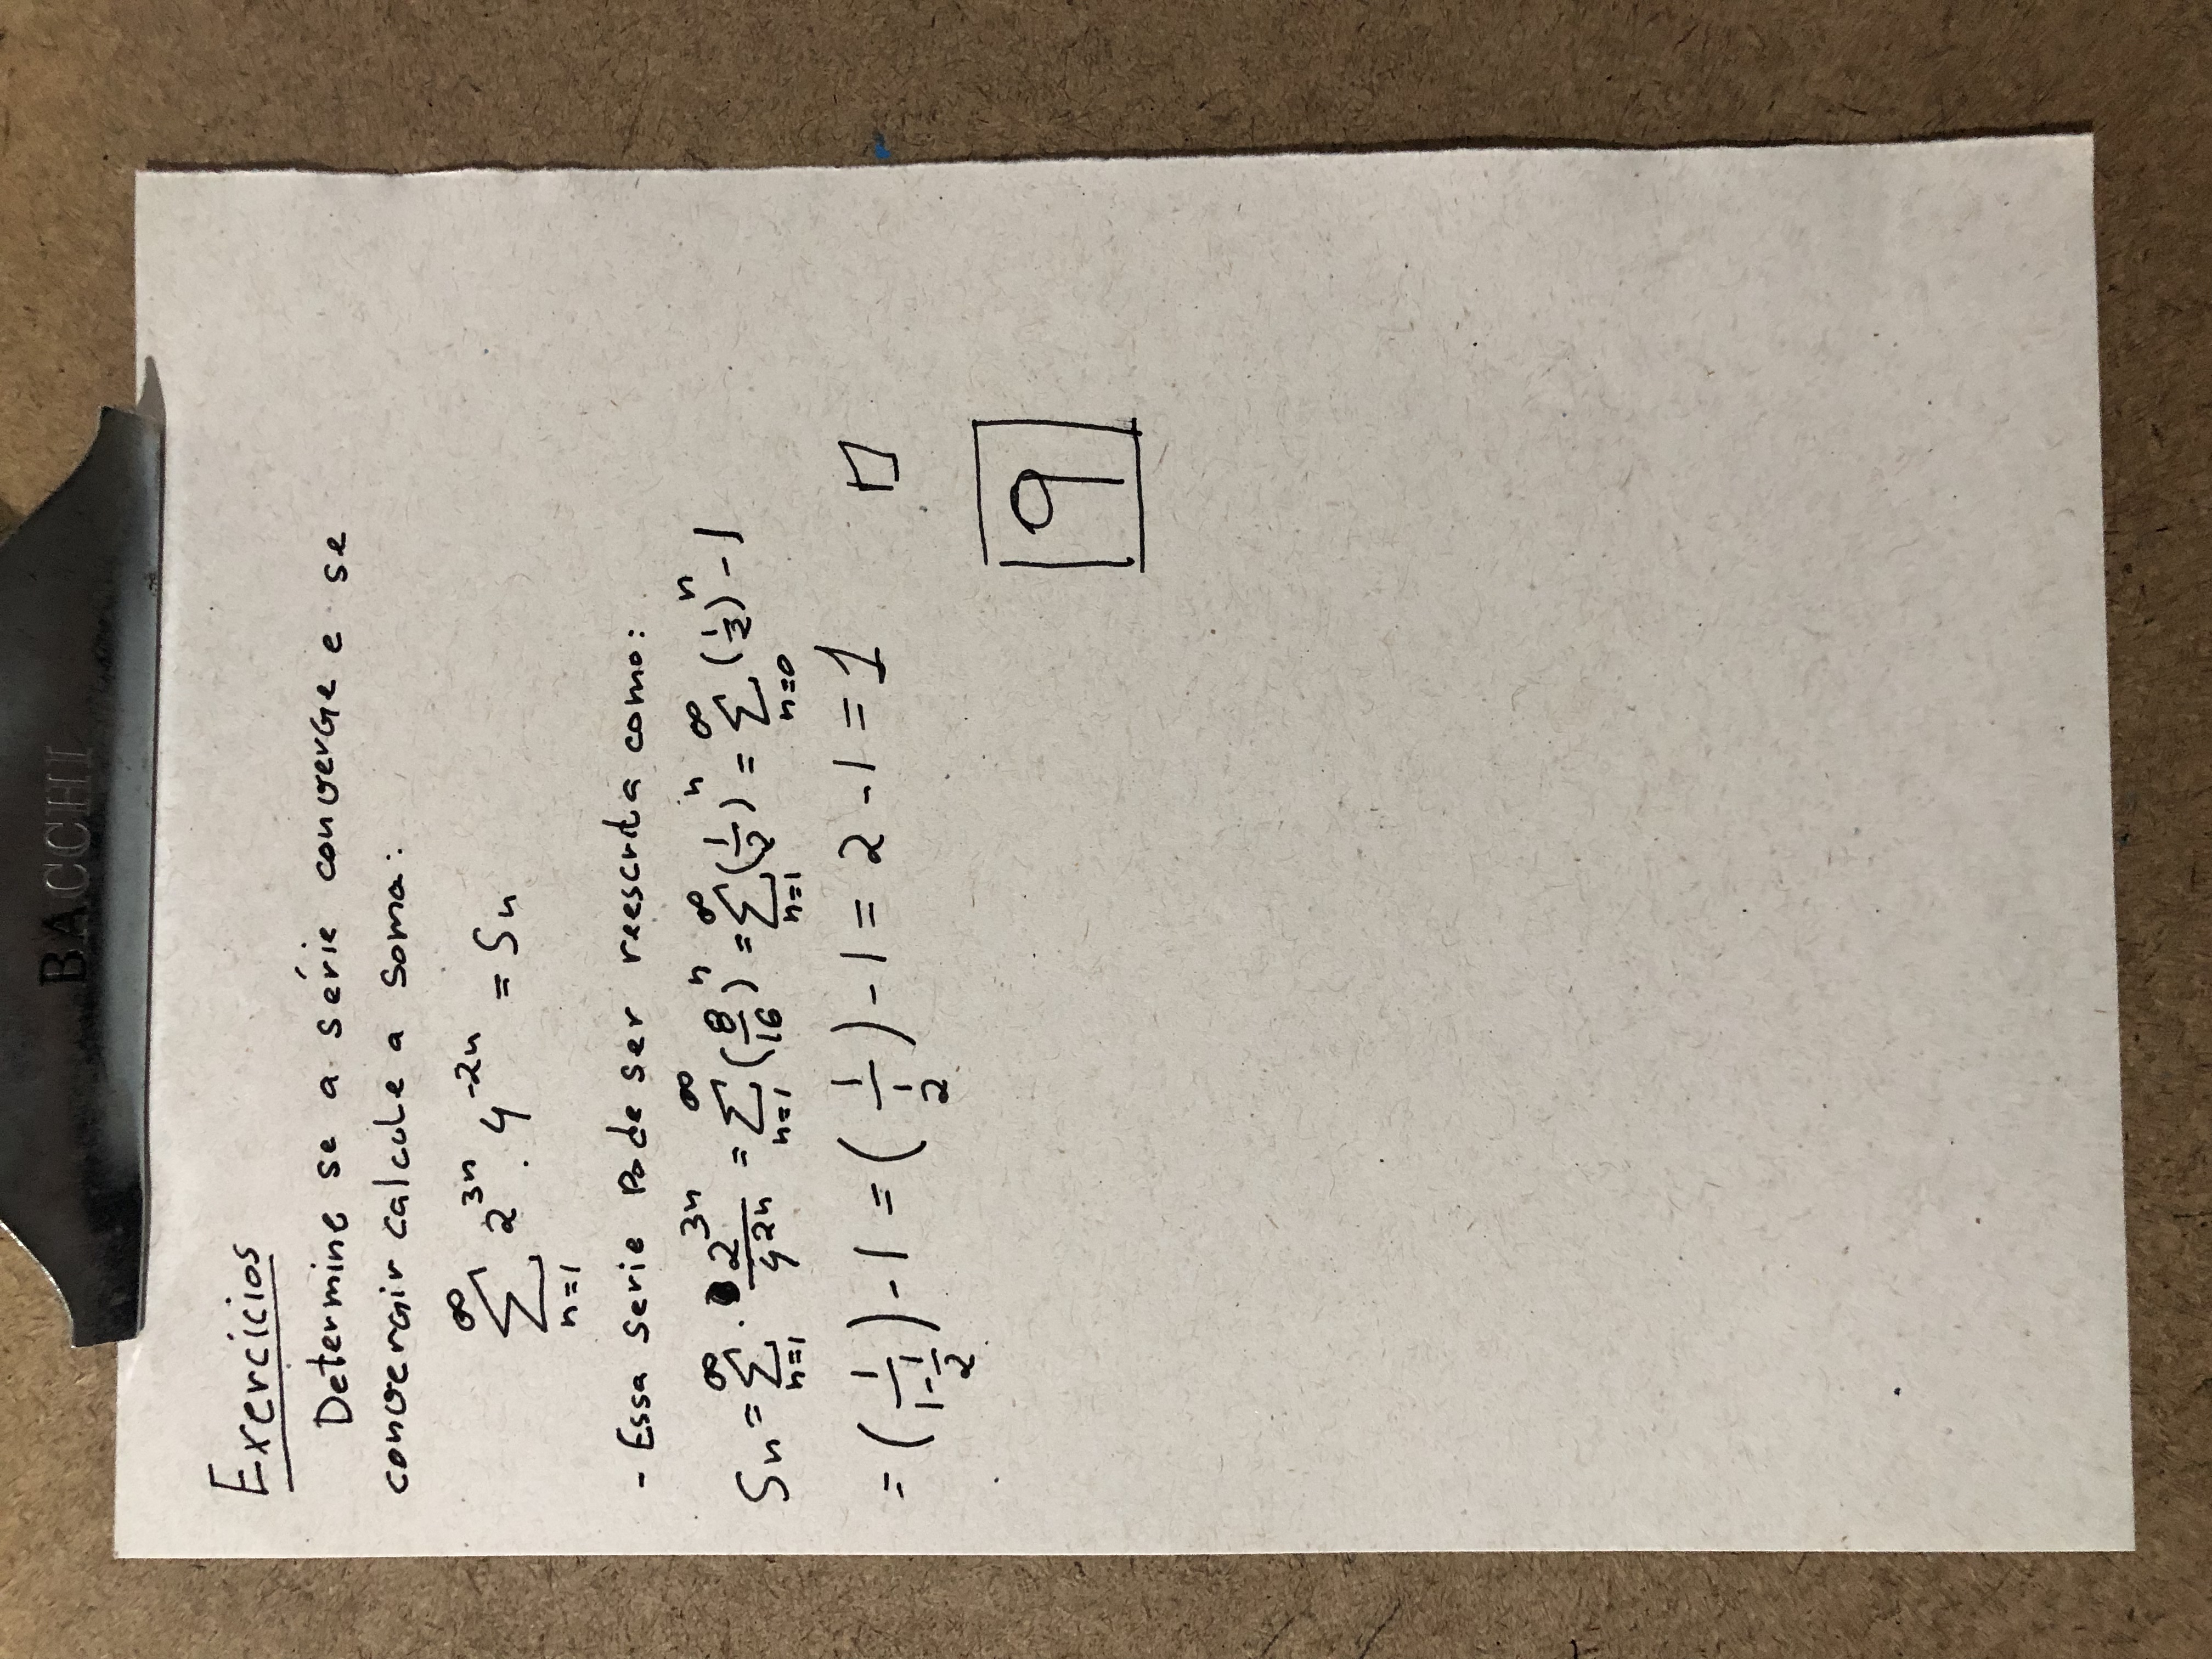 BACCHI
Exercícios
Determine se a série converge e se
convergir calcule a soma:
∞
∑ 2^{3n} . 4^{-2n} = Sn
n=1
- Essa serie pode ser reescrita como:
Sn = ∑_{n=1}^{∞} · 2^{3n}/4^{2n} = ∑_{n=1}^{∞} (8/16)^n = ∑_{n=1}^{∞} (1/2)^n = ∑_{n=0}^{∞} (1/2)^n - 1
= (1/(1-1/2)) - 1 = (1/(1/2)) - 1 = 2 - 1 = 1 □
9